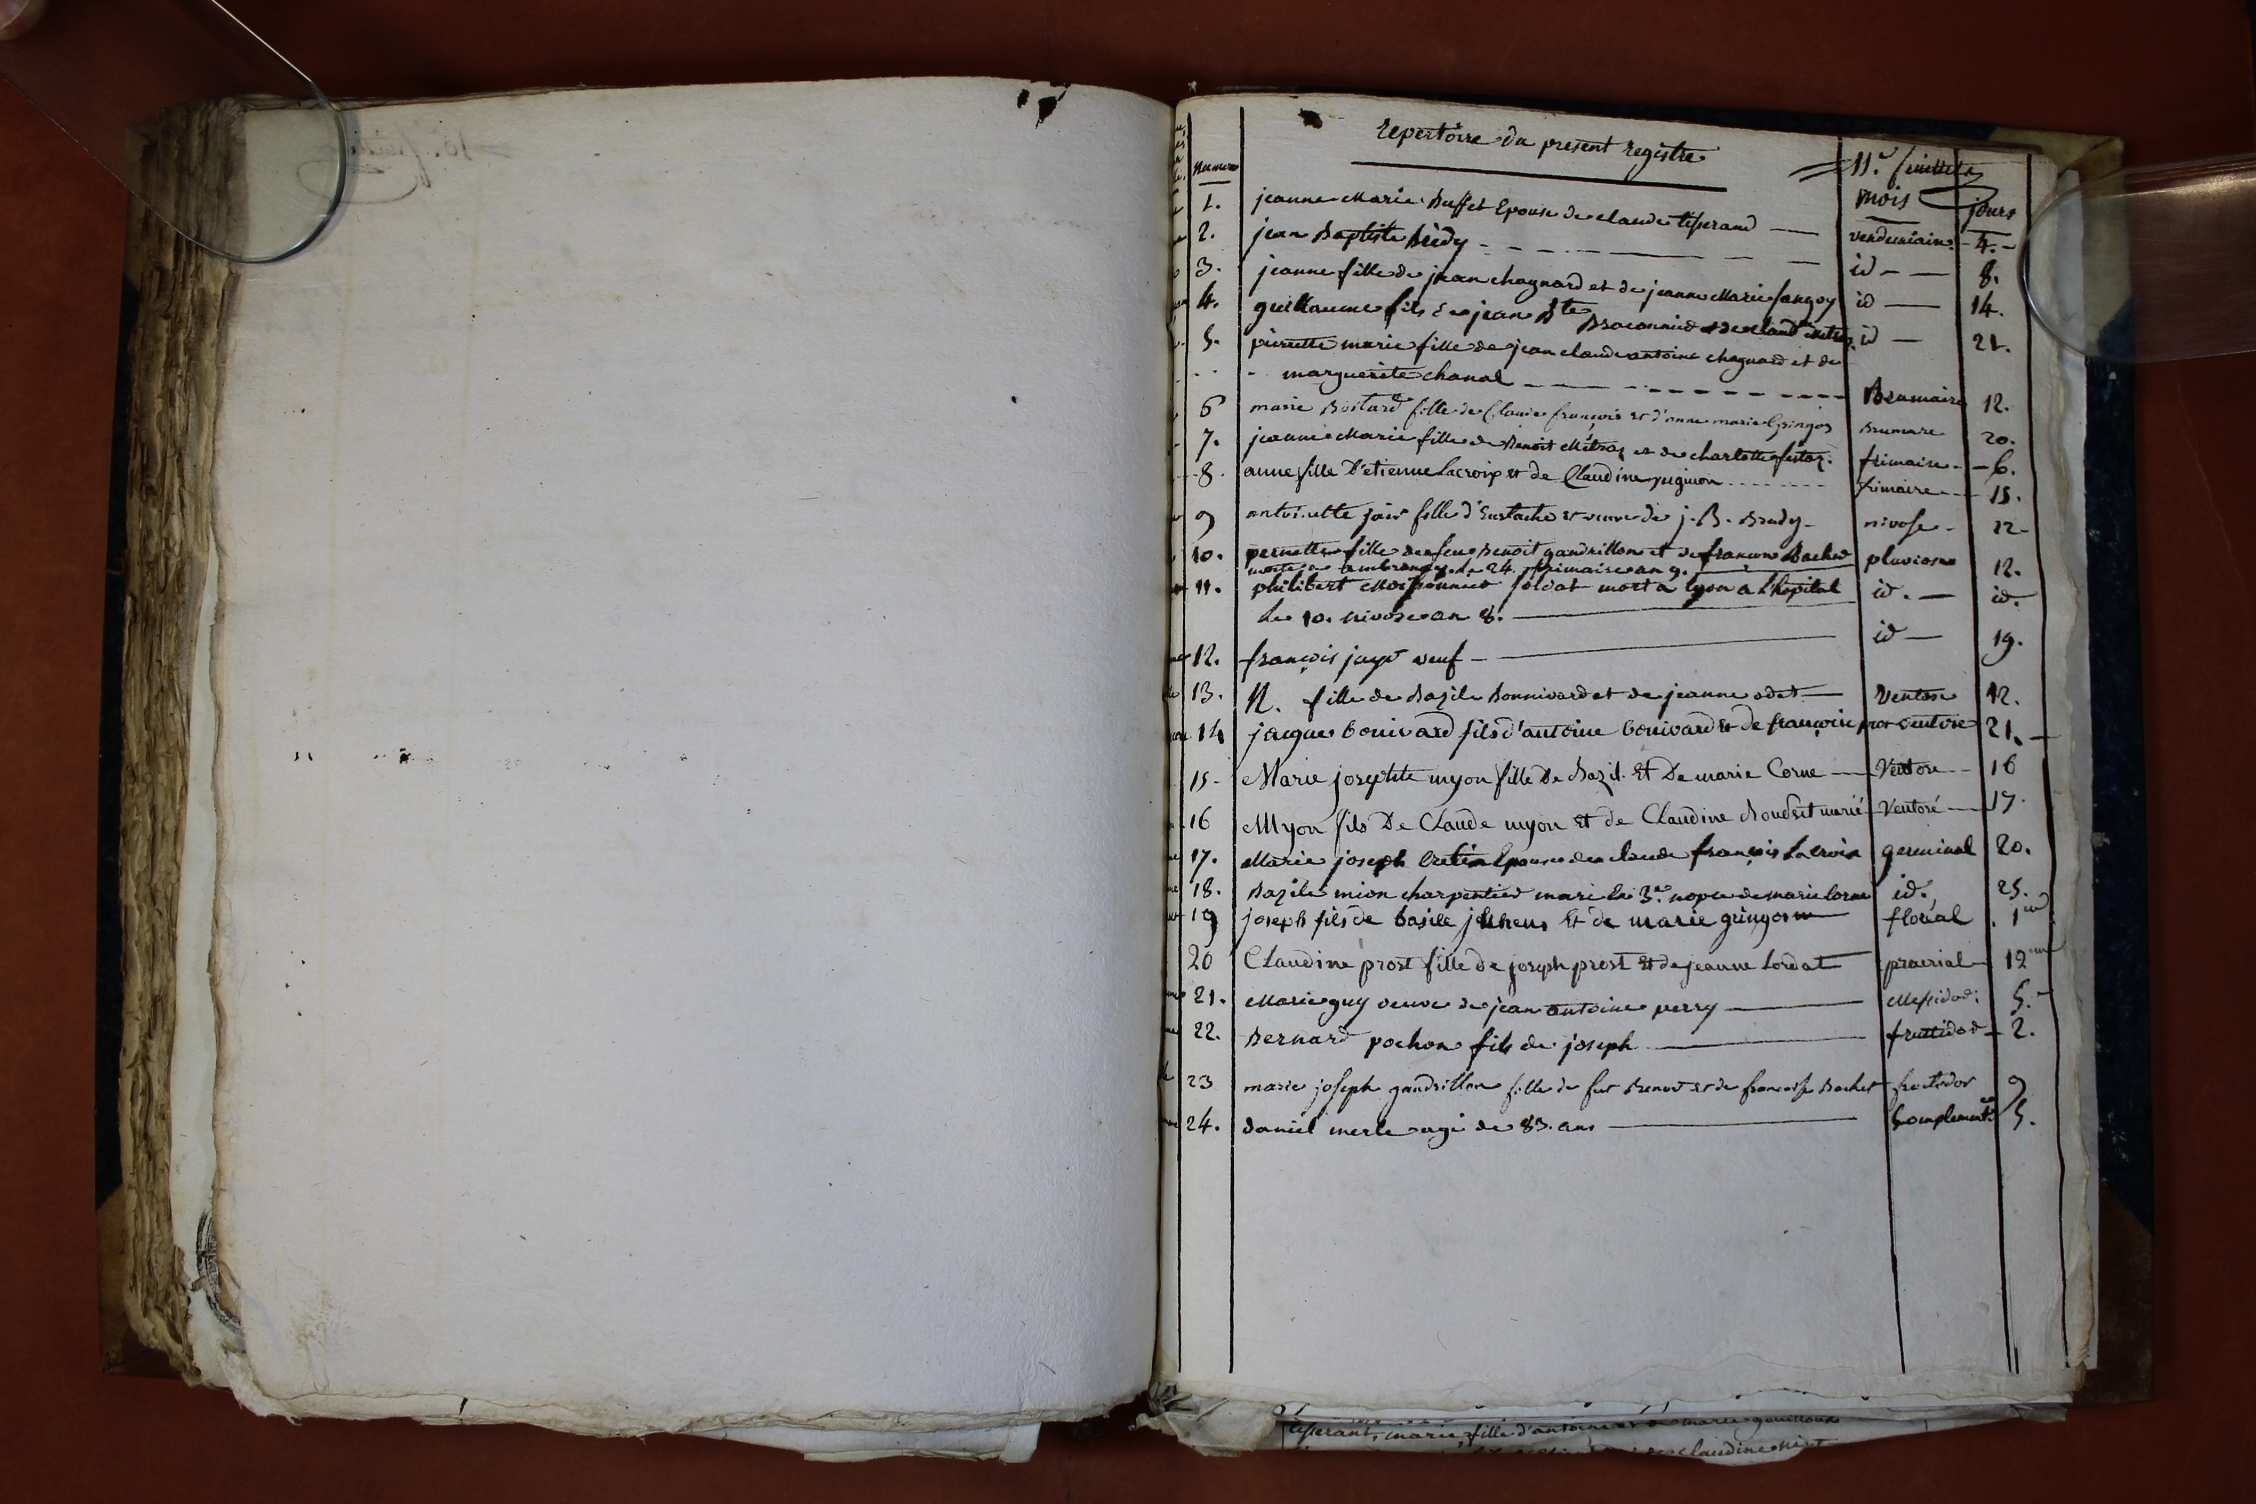 repertoire du present registre
11.e feuillet
Numero
mois jours
1. jeanne Marie Buffet Epouse de claude tisserand vendemiaire 4.
2. jean Baptiste Brédy id 8.
3. jeanne fille de jean chagnard et de jeanne Marie id 14.
4. guillaume fils de jean Bte Braconnier et de id 21.
5. pierrette marie fille de jean claude antoine chagnard et de
marguerite chanal Brumaire 12.
6 marie fille de Claude françois et d'anne marie Gringoz Brumaire 20.
7. jeanne Marie fille de Benoit Métraz et de charlotte frimaire 6.
8. anne fille D'etienne Lacroix et de Claudine frimaire 15.
9 antoinette fille d'Eustache et veuve de j. B. Bredy nivose 12
10. pernette fille de feu Benoit gandrillon et de Bachet pluviose 12.
morte a le 24. frimaire an 9.
11. philibert soldat mort a lyon a l'hopital id. id.
le 10. nivose an 8.
12. françois veuf id 19.
13. N. fille de Bazile Bonnivard et de jeanne odet Ventose 12.
14 jacque bonivard fils d'antoine bonivard et de françoise prost ventose 21.
15 Marie josephte myon fille De Bazil Et De marie Corne Ventose 16
16 Myon fils De Claude myon et de Claudine Ventosé 17.
17. Marie joseph Cretin Epouse de claude françois Lacroix germinal 20.
18. Bazile mion charpentier mari en 3.es nopce de marie Corne id. 25.
19 joseph fils de basile et de marie gringos floréal 1er
20 Claudine prost fille de joseph prost et de jeanne Lordat praerial 12me
21. Marie guy veuve de jean antoine perry Messidor 5.
22. Bernard pochon fils de joseph fructidor 2.
23 marie joseph gandrillon fille de feu Benoit et de francoise Bachet fructidor 9
24. daniel merle agé de 83. ans Complement.re 5.
tisserant, marie, fille d'antoine et de marie
claudine